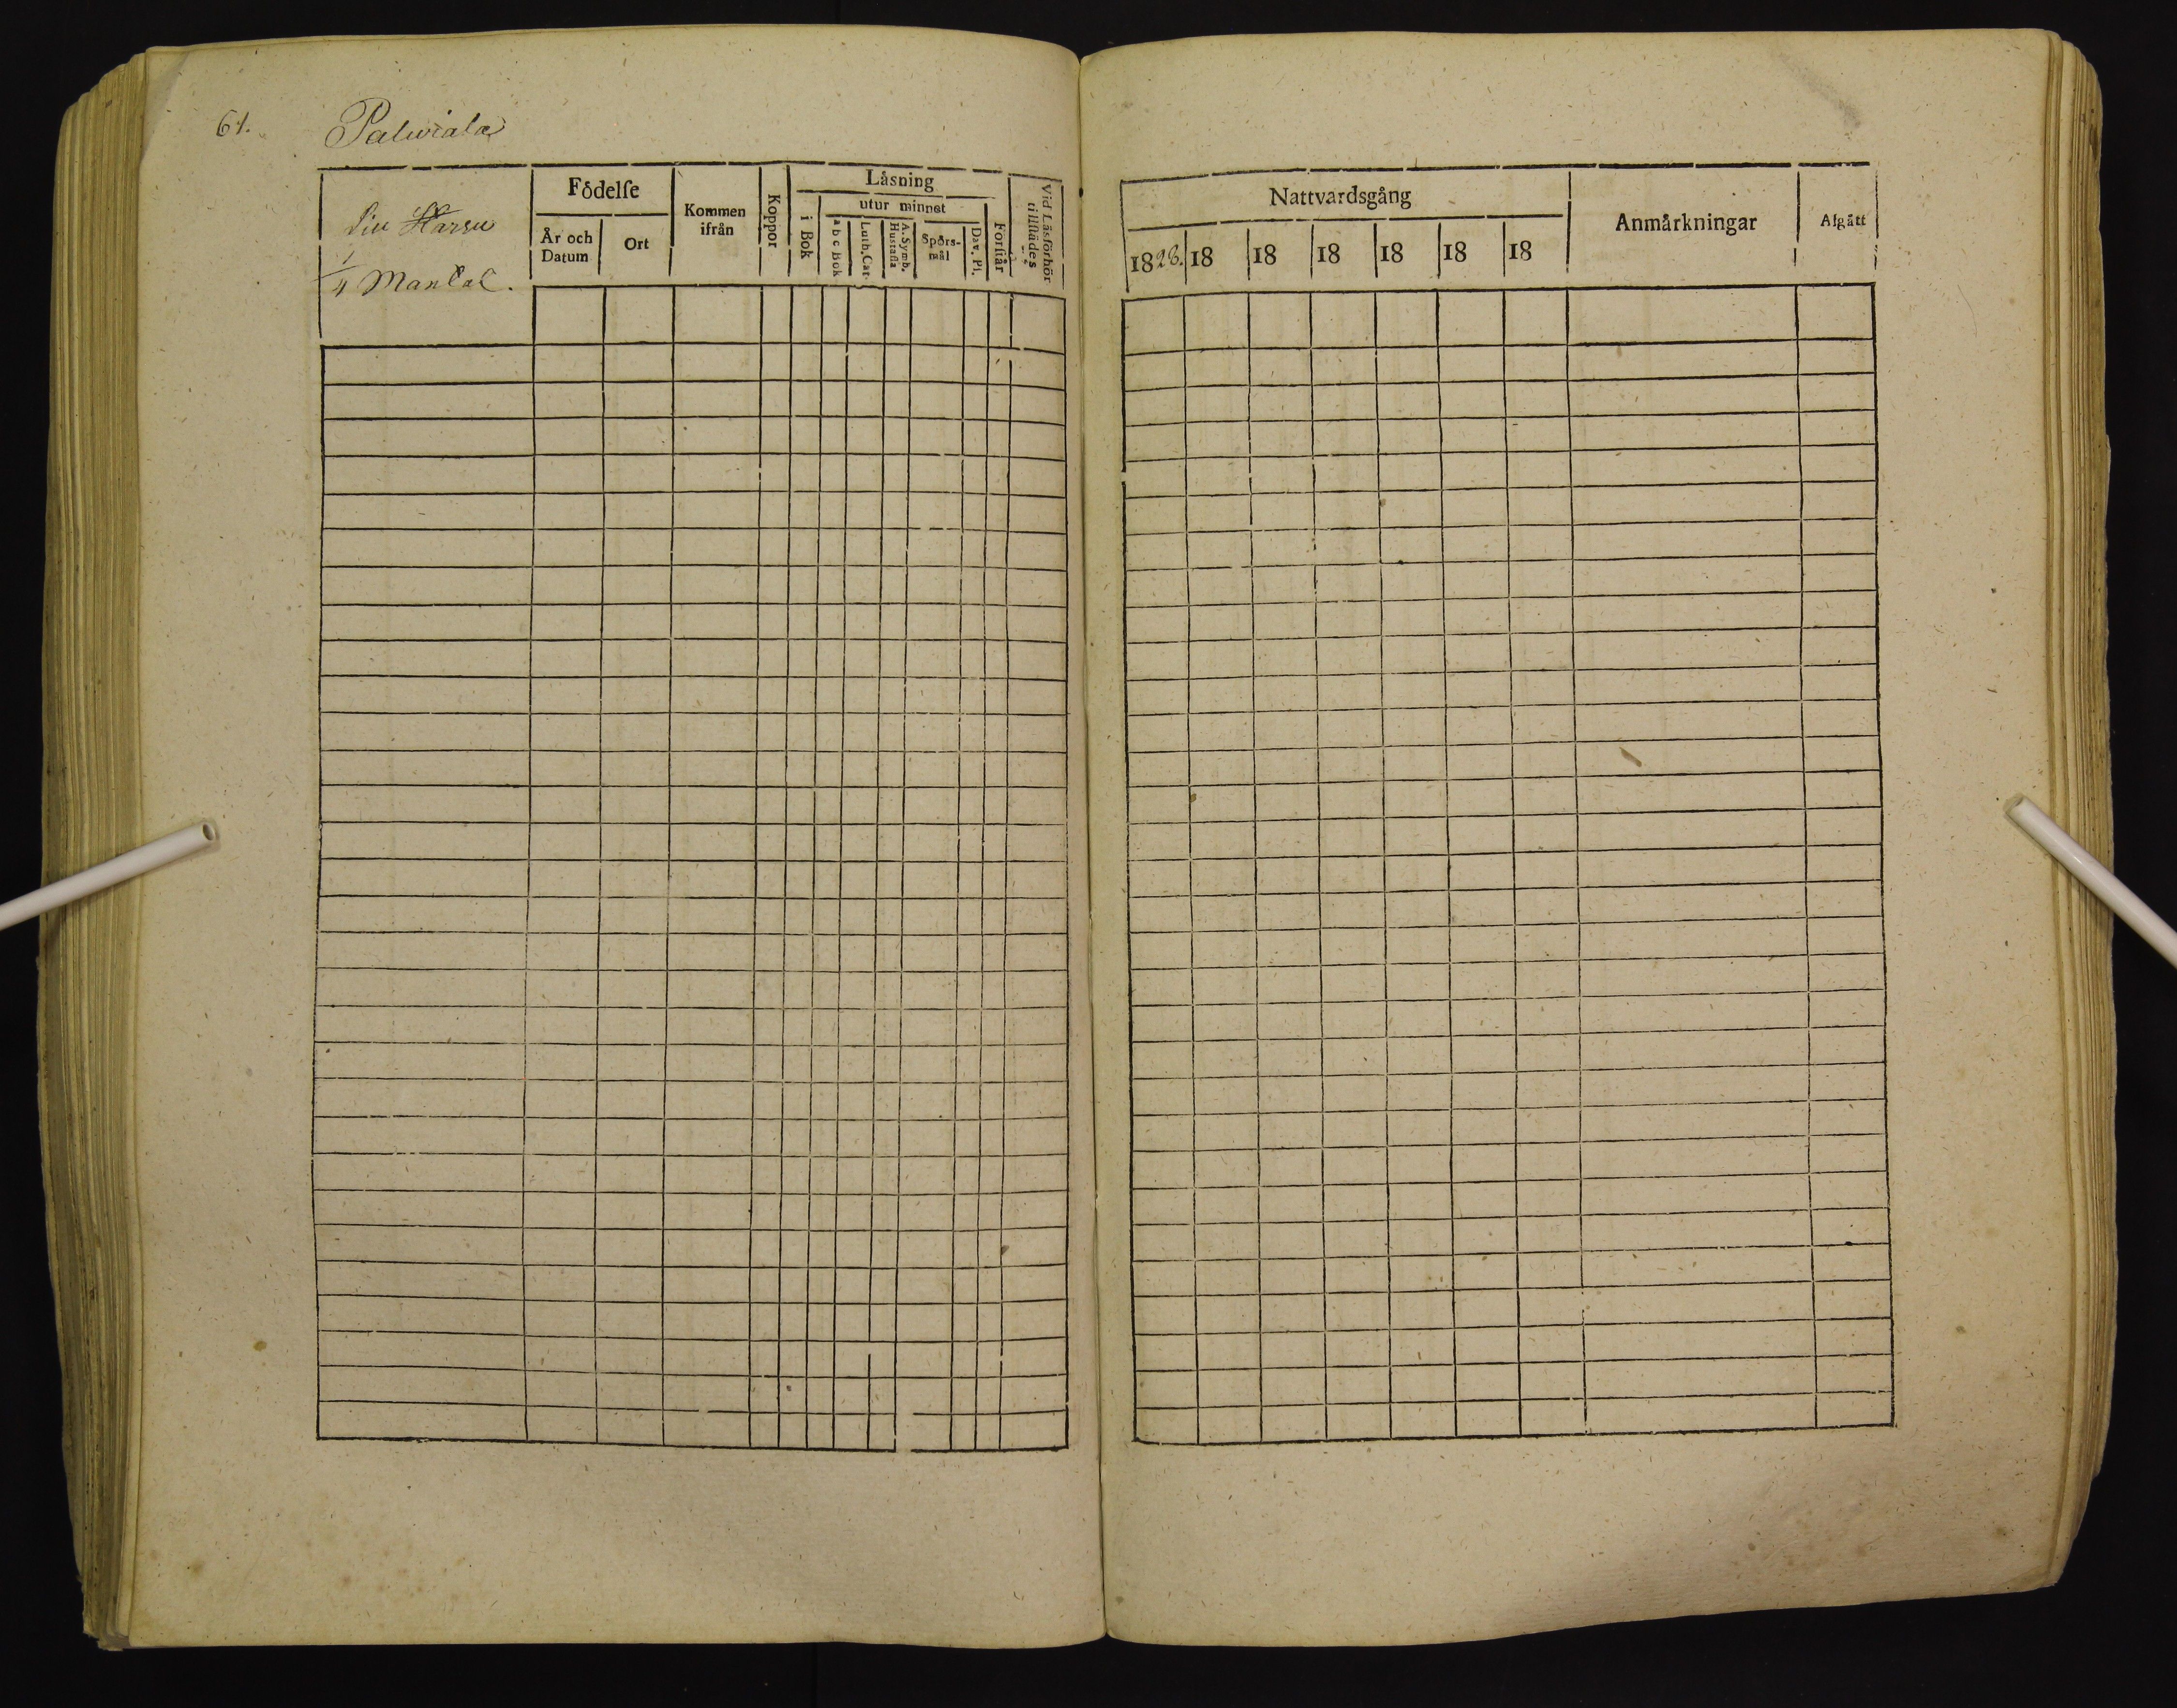 61.
Palwiala
Födelſe
Kommen ifrån
Koppor
Läsning
utur minnet
Vid Läsförhör tillſtädes
År och Datum
Ort
i Bok
a b c Bok
Luth. Cat.
A. Symb. Hustafla
Spörsmål
Dav. Pſ.
Forſtår
1/4 Mantal.
Nattvardsgång
Anmärkningar
Afgått
1828. 18 18 18 18 18 18